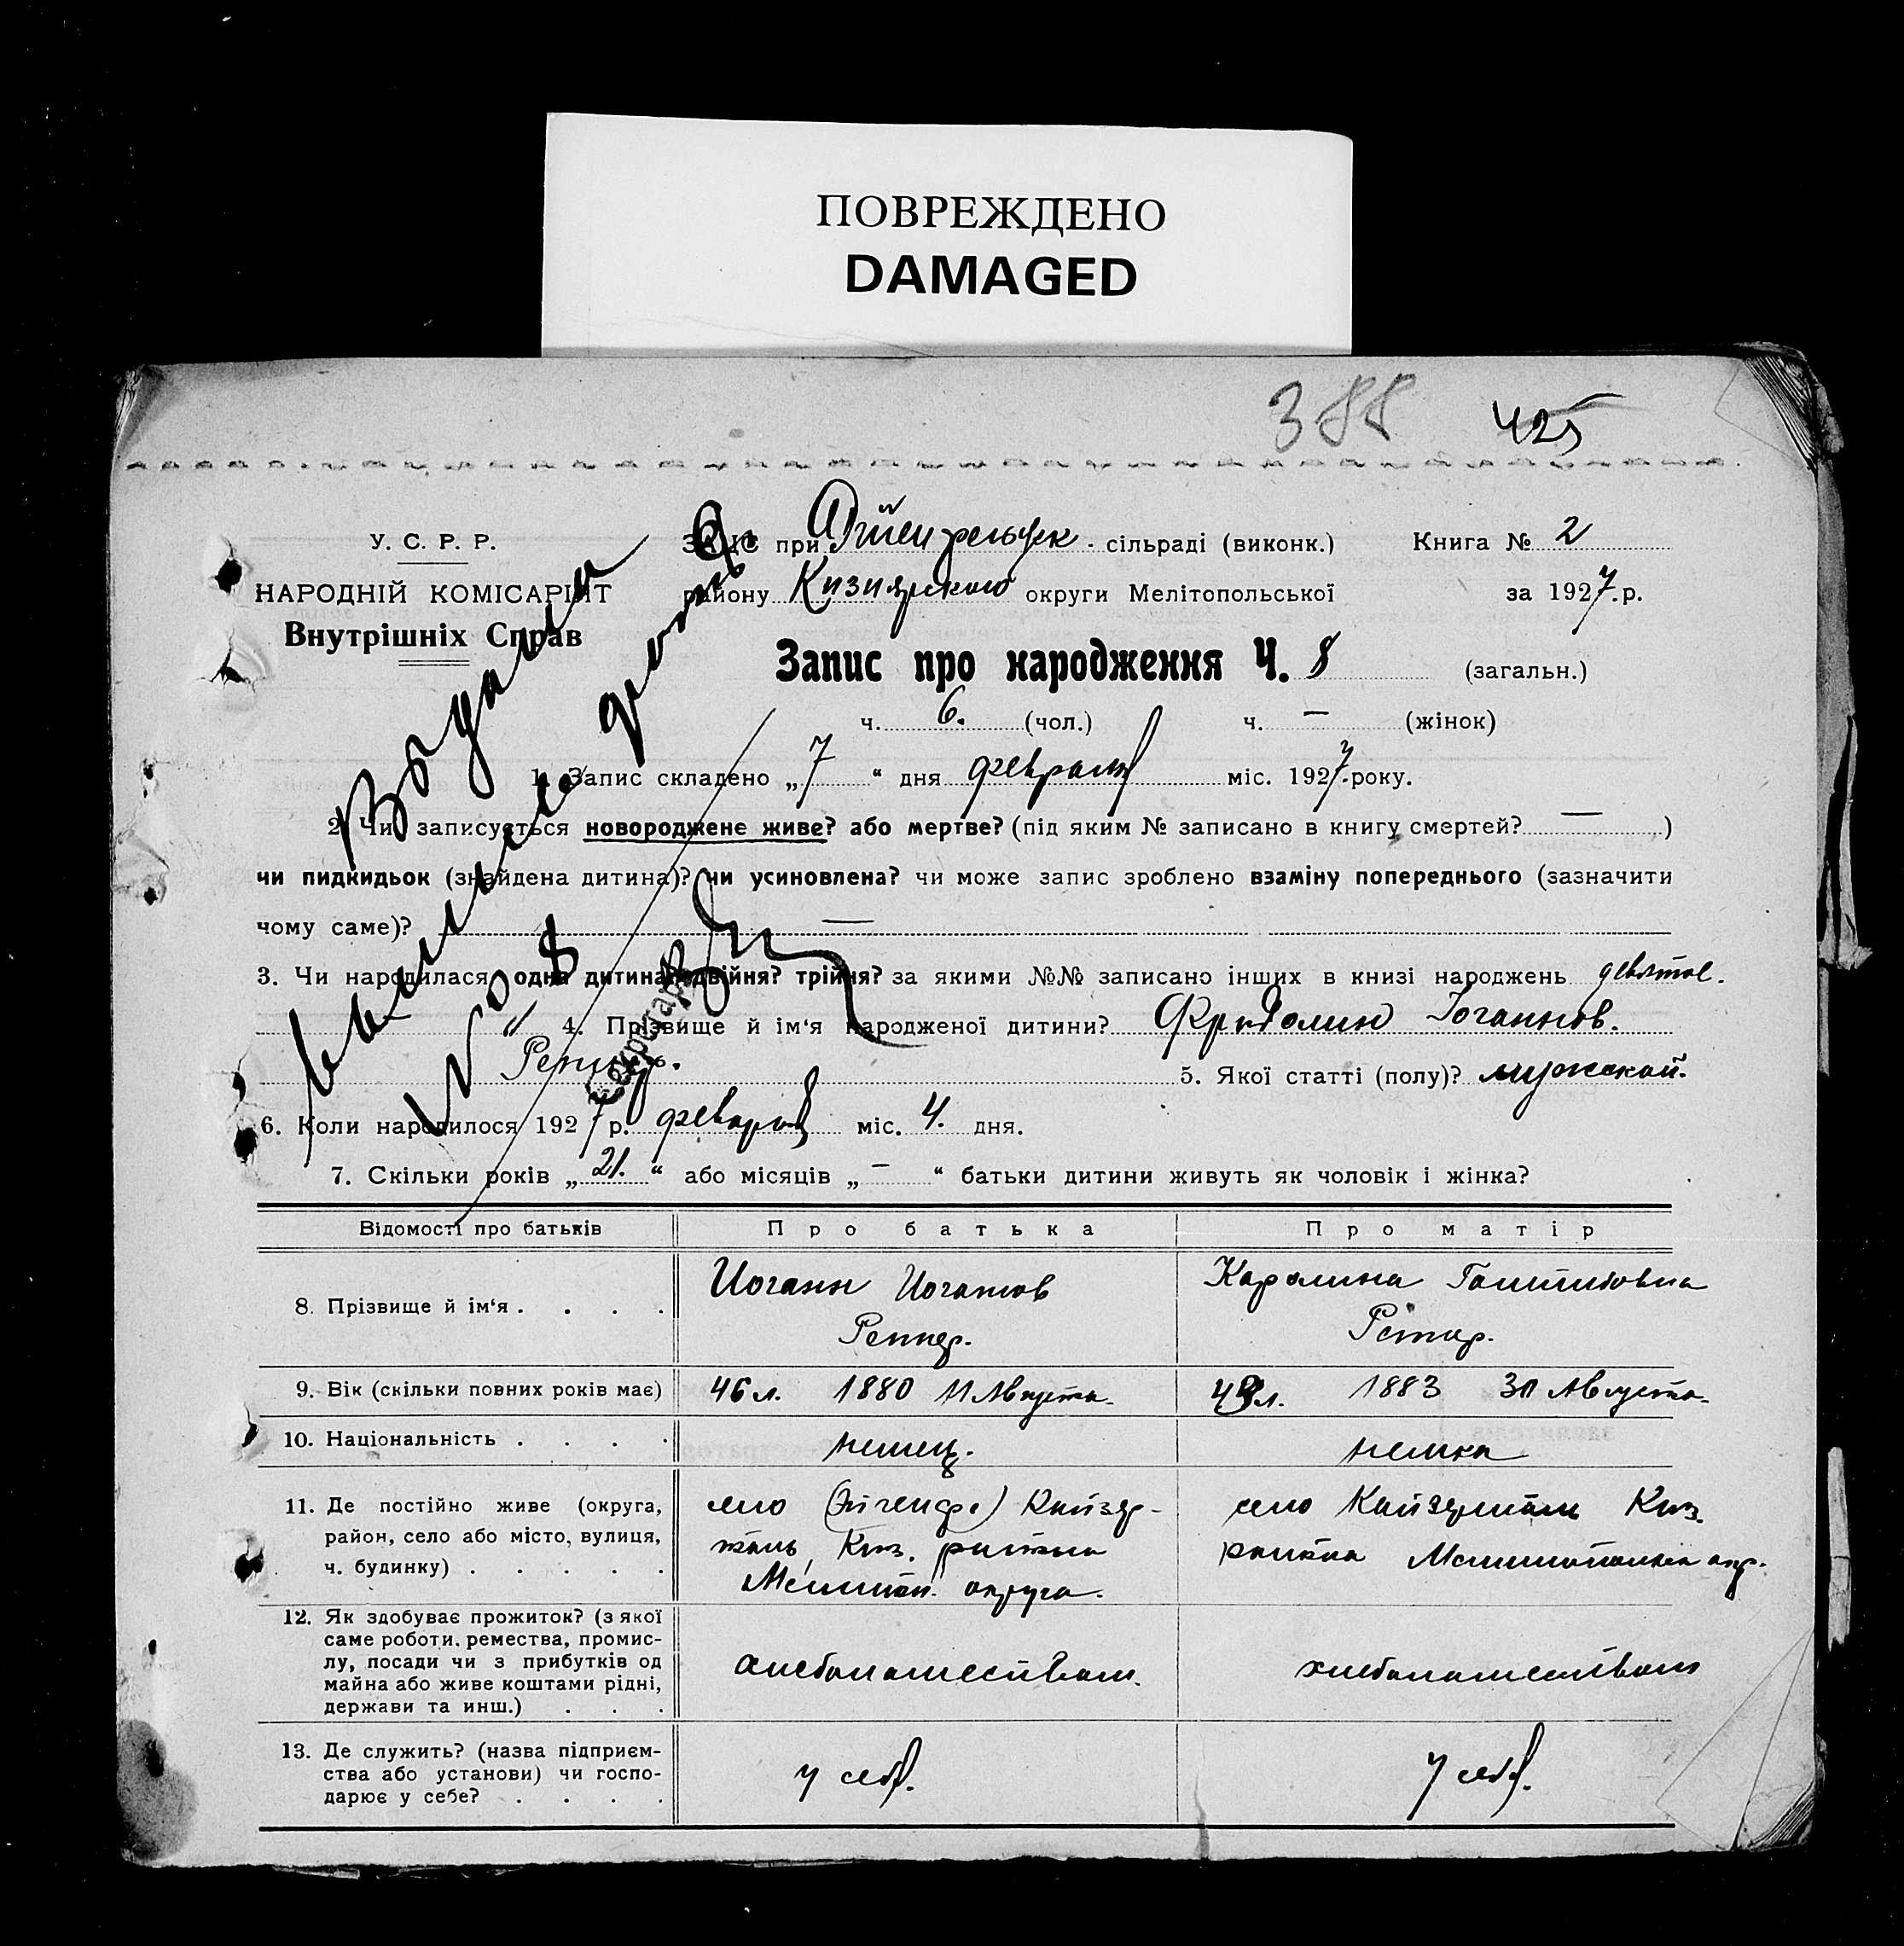 ПОВРЕЖДЕНО
DAMAGED
388 425
У. С. Р. Р.
НАРОДНІЙ КОМІСАРІЯТ
Внутрішніх Справ
ЗАГС при сільраді (виконк.) Книга № 2
району Кизиярского округи Мелітопольської за 1927 р.
Запис про народження Ч. 8 (загальн.)
ч. 6. (чол.) ч. — (жінок)
1. Запис складено „7“ дня февраля міс. 1927 року.
2. Чи записується новороджене живе? або мертве? (під яким № записано в книгу смертей? — )
чи пидкидьок (знайдена дитина)? чи усиновлена? чи може запис зроблено взаміну попереднього (зазначити
чому саме)? —
3. Чи народилася одна дитина? двійня? трійня? за якими №№ записано інших в книзі народжень девятое.
4. Прізвище й ім‘я народженої дитини? Фридолин Иоганнов.
Реппер. 5. Якої статті (полу)? мужской.
6. Коли народилося 1927 р. февраля міс. 4. дня.
7. Скільки років „21.“ або місяців „—“ батьки дитини живуть як чоловік і жінка?
Выдана
№ 8
Секретарь
Відомості про батьків Про батька Про матір
8. Прізвище й ім‘я . . . . Иоганн Иоганов Реппер. Каролина Готлибовна Реппер.
9. Вік (скільки повних років має) 46 л. 1880 11 Августа. 43 л. 1883 30 Августа.
10. Національність . . . . немец. немка
11. Де постійно живе (округа, район, село або місто, вулиця, ч. будинку) . . . . . село (Эйгенфе) Кайзер-
таль, Киз. района
Мелитоп. округа. село Кайзерталь Киз.
района Мелитопольск окр.
12. Як здобуває прожиток? (з якої
саме роботи, ремества, промис-
лу, посади чи з прибутків од
майна або живе коштами рідні,
держави та инш.) . . . хлебопашеством. хлебопашеством
13. Де служить? (назва підприєм-
ства або установи) чи госпо-
дарює у себе? . . . . у себя. у себя.